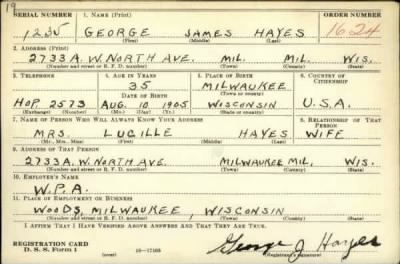 19
SERIAL NUMBER 1. NAME (Print) ORDER NUMBER
1235 GEORGE JAMES HAYES 1624
(First) (Middle) (Last)
2. ADDRESS (Print)
2733A. W. NORTH AVE. MIL. MIL. WIS.
(Number and street or R. F. D. number) (Town) (County) (State)
3. TELEPHONE 4. AGE IN YEARS 5. PLACE OF BIRTH 6. COUNTRY OF CITIZENSHIP
35 MILWAUKEE
DATE OF BIRTH (Town or county)
HOP. 2573 AUG. 10 1905 WISCONSIN U.S.A.
(Exchange) (Number) (Mo.) (Day) (Yr.) (State or country)
7. NAME OF PERSON WHO WILL ALWAYS KNOW YOUR ADDRESS 8. RELATIONSHIP OF THAT PERSON
MRS. LUCILLE HAYES WIFE
(Mr., Mrs., Miss) (First) (Middle) (Last)
9. ADDRESS OF THAT PERSON
2733A. W. NORTH AVE. MILWAUKEE MIL. WIS.
(Number and street or R. F. D. number) (Town) (County) (State)
10. EMPLOYER'S NAME
W.P.A.
11. PLACE OF EMPLOYMENT OR BUSINESS
WOODS, MILWAUKEE, WISCONSIN
(Number and street or R. F. D. number) (Town) (County) (State)
I AFFIRM THAT I HAVE VERIFIED ABOVE ANSWERS AND THAT THEY ARE TRUE.
REGISTRATION CARD
D. S. S. Form 1 (over) 16—17105 George J Hayes